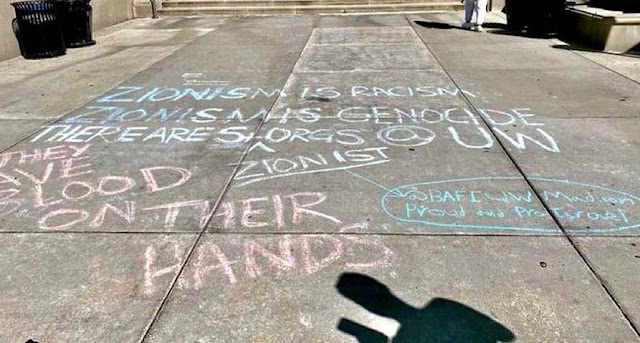 ZIONISM IS RACISM
ZIONISM IS GENOCIDE
THERE ARE 5 ORGS @ UW
ZIONIST
THEY
HAVE
BLOOD
ON THEIR
HANDS
Proud and Pro-Israel